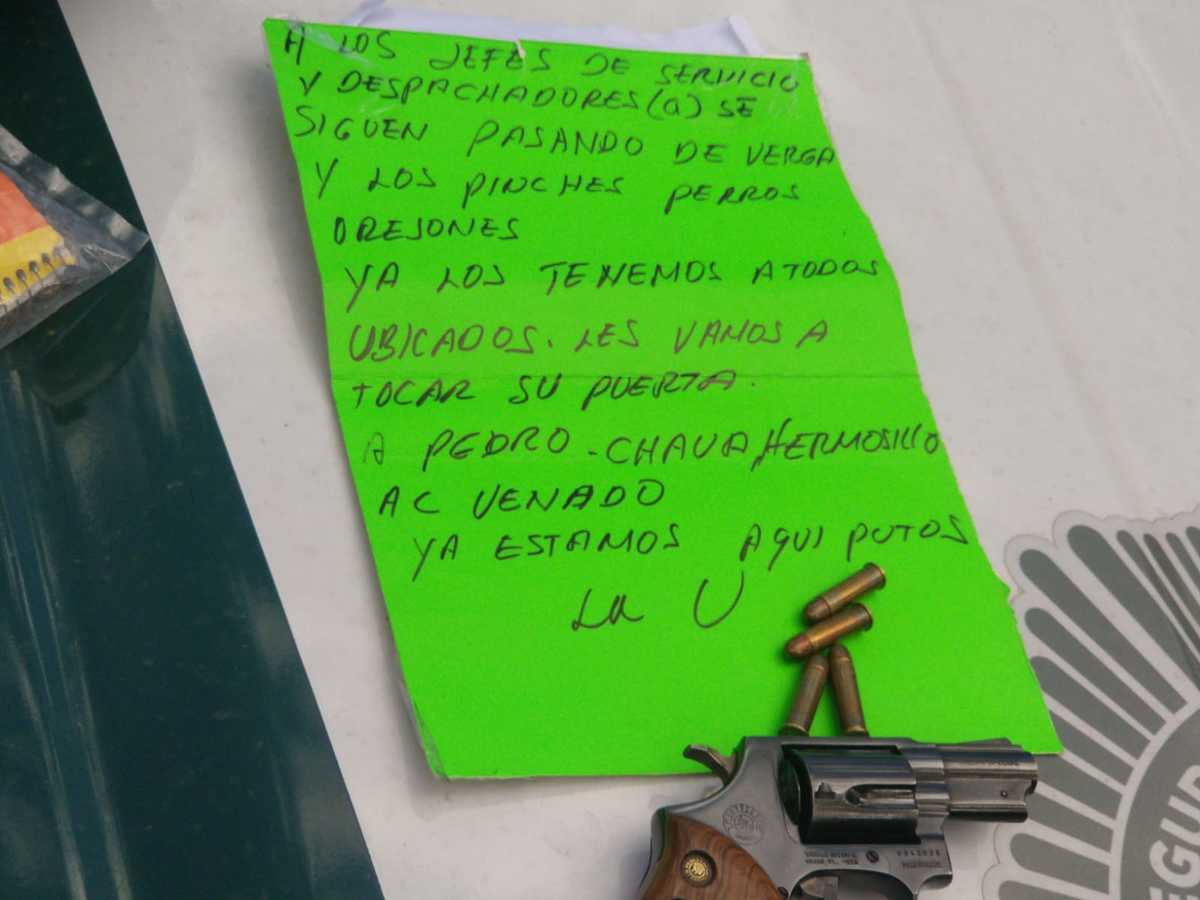 A LOS JEFES DE SERVICIO
Y DESPACHADORES(a) SE
SIGUEN PASANDO DE VERGA
Y LOS PINCHES PERROS
OREJONES
YA LOS TENEMOS A TODOS
UBICADOS. LES VAMOS A
TOCAR SU PUERTA.
A PEDRO - CHAVA, HERMOSILLO
AC VENADO
YA ESTAMOS AQUI PUTOS
La U
EGUR